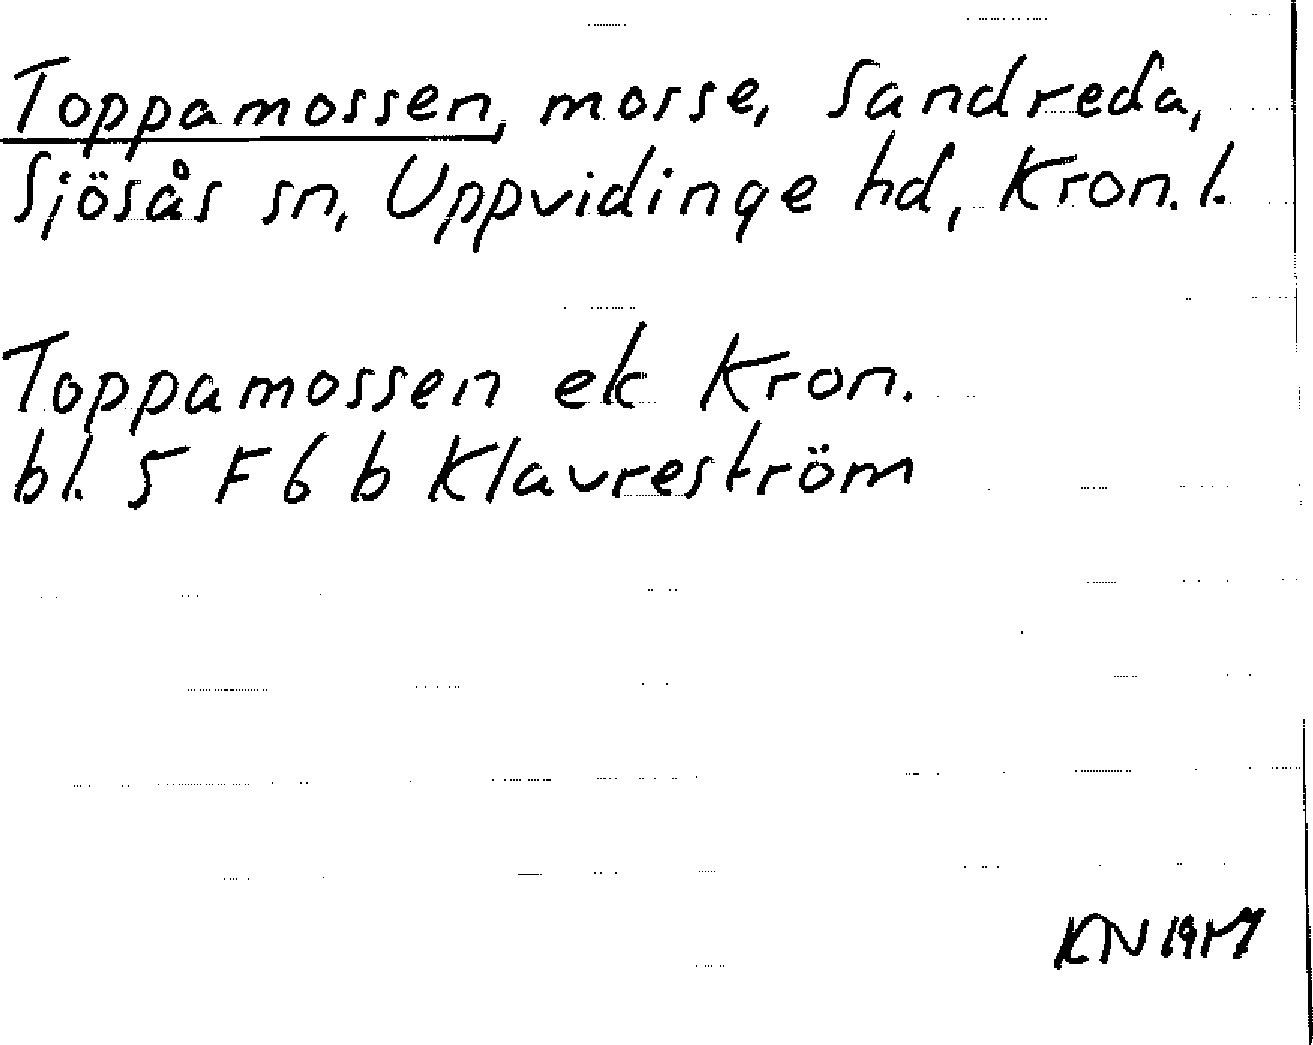 Toppamossen, mosse, Sandreda,
Sjösås sn, Uppvidinge hd, Kron. l.
Toppamossen ek Kron.
bl. 5 F 6 b Klavreström